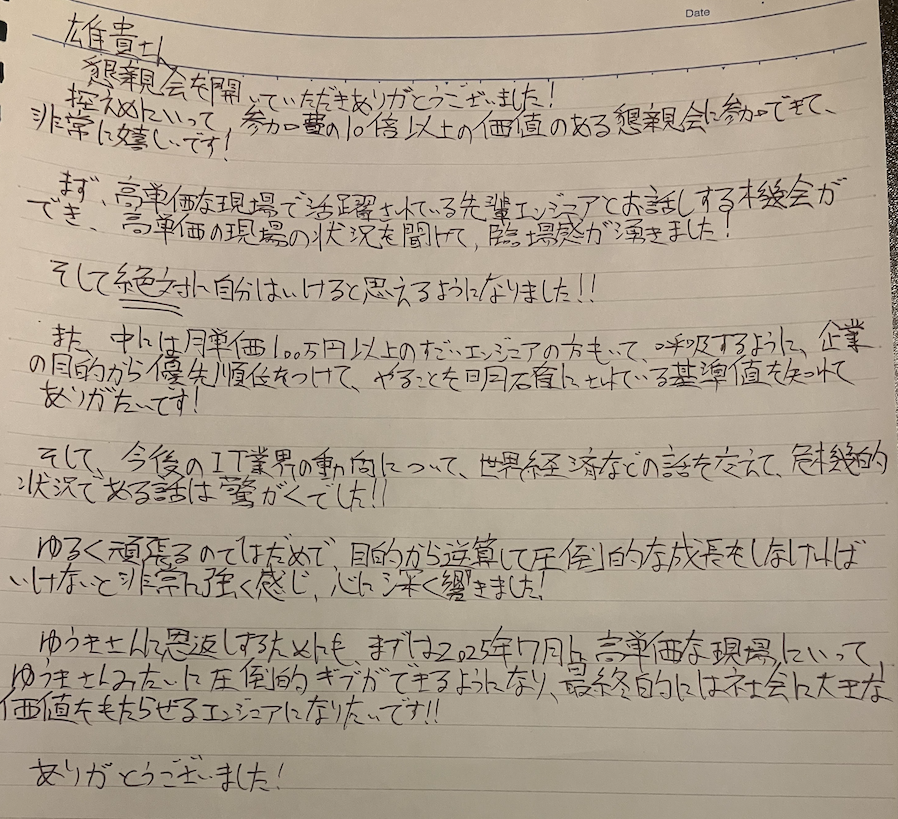 Date
雄貴さん
懇親会を開いていただきありがとうございました!
控えめにいって 参加費の10倍以上の価値のある懇親会に参加できて、
非常に嬉しいです!
まず、高単価な現場で活躍されている先輩エンジニアとお話しする機会が
でき、高単価の現場の状況を聞けて、臨場感が湧きました!
そして絶対に自分はいけると思えるようになりました!!
また、中には月単価100万円以上のすごいエンジニアの方もいて、呼吸するように、企業
の目的から優先順位をつけて、やることを明確にされている基準値を知れて
ありがたいです!
そして、今後のIT業界の動向について、世界経済などの話を交えて、危機的
状況である話は驚がくでした!!
ゆるく頑張るのではだめで、目的から逆算して圧倒的な成長をしなければ
いけないと非常に強く感じ、心に深く響きました!
ゆうきさんに恩返しするためにも、まずは2025年7月に高単価な現場にいって、
ゆうきさんみたいに圧倒的ギブができるようになり、最終的には社会に大きな
価値をもたらせるエンジニアになりたいです!!
ありがとうございました!